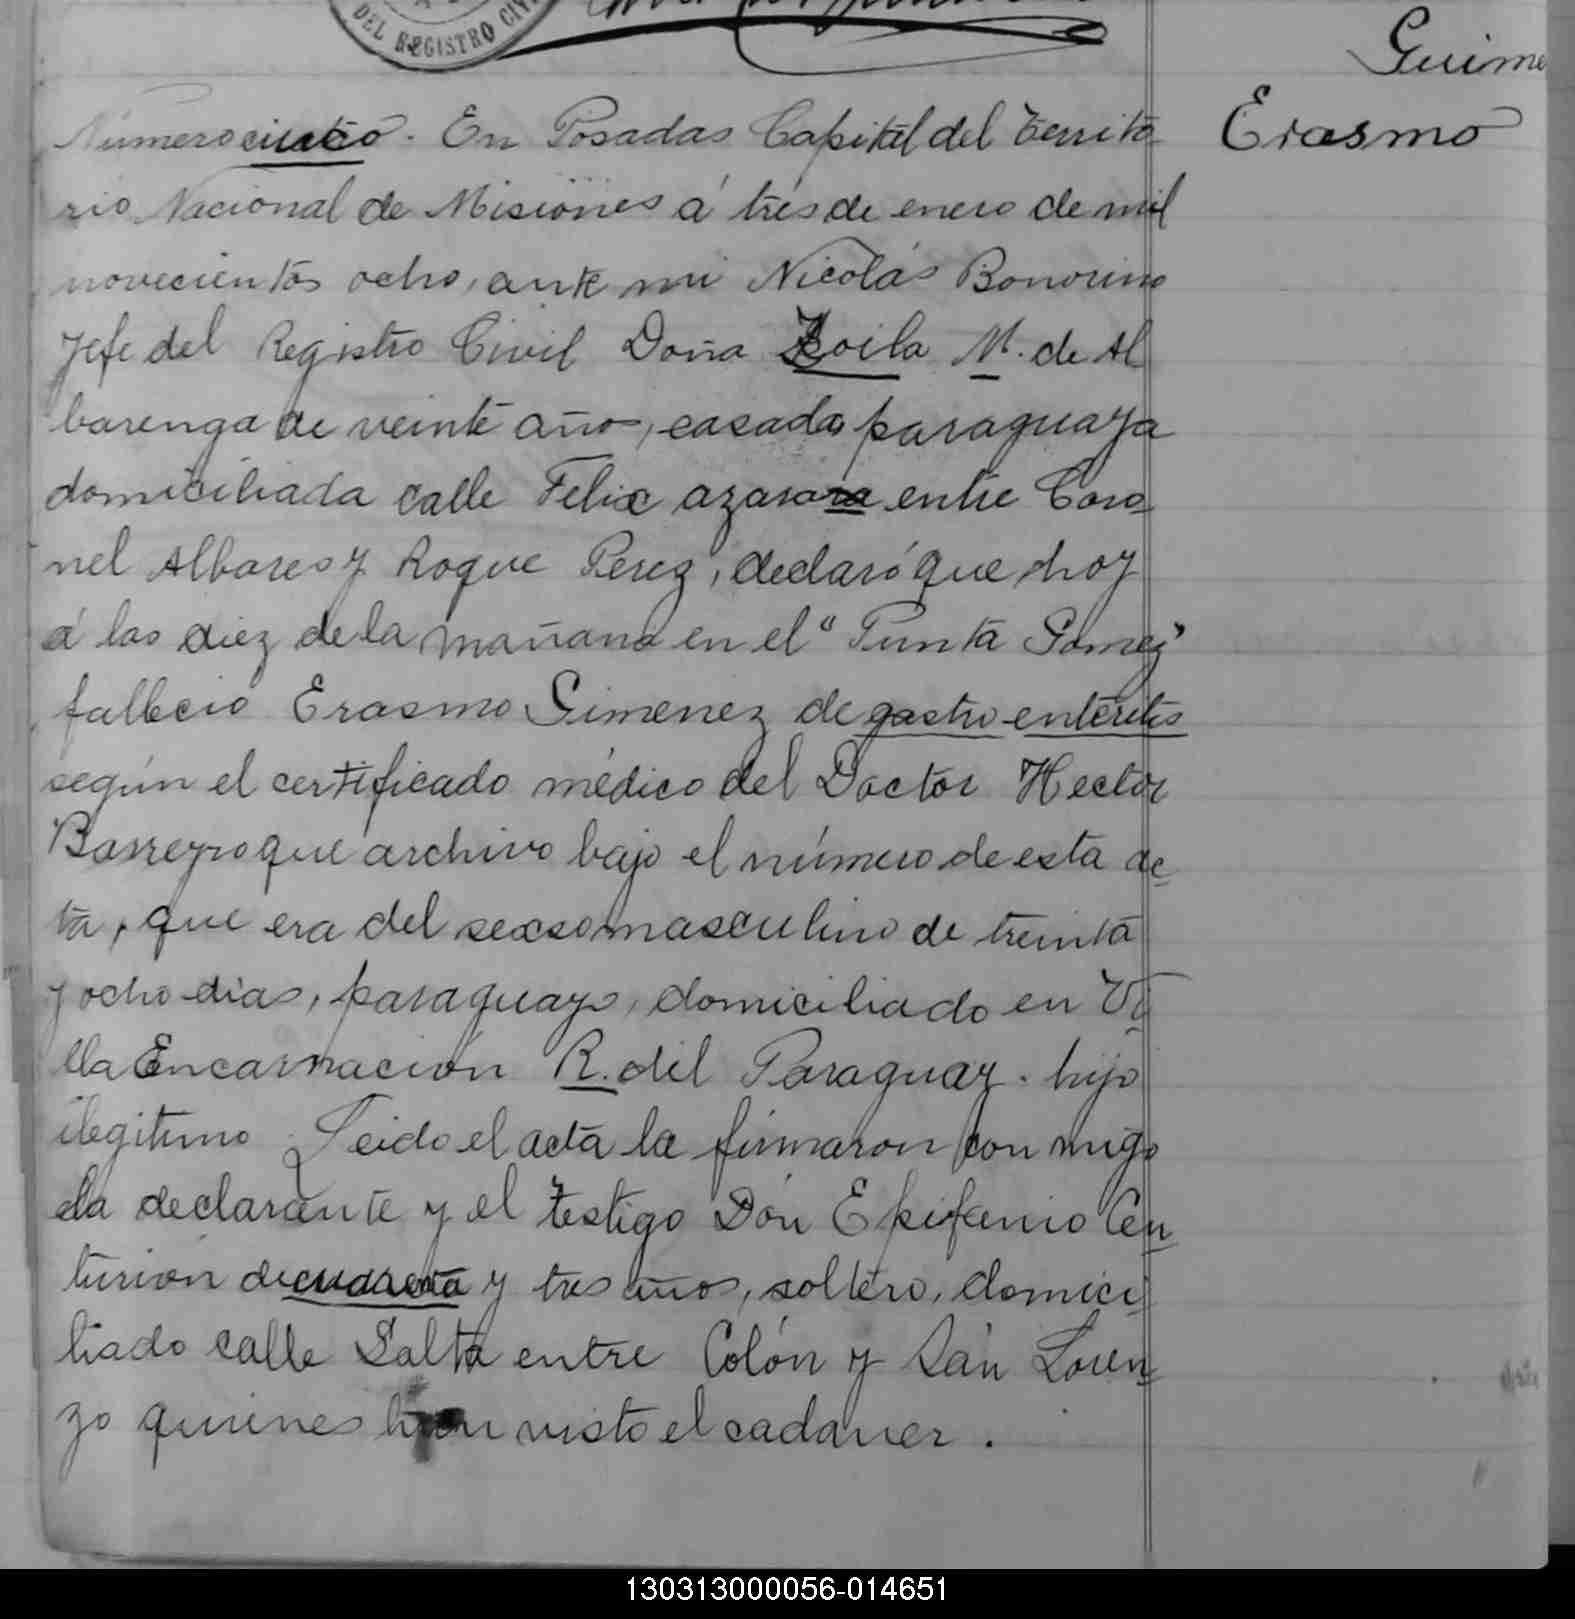 DEL REGISTRO CIVI
Guime
Erasmo
Número cuatro. En Posadas Capital del Territo
rio Nacional de Misiones á tres de enero de mil
novecientos ocho, ante mi Nicolás Bonorino
Jefe del Registro Civil Doña Zoila M. de Al
barenga de veinte años, casada, paraguaya
domiciliada calle Felix azarara entre Coro
nel Albares y Roque Perez, declaró que hoy
á las diez de la mañana en el "Punta Gomez"
fallecio Erasmo Gimenez de gastro enteritis
según el certificado médico del Doctor Hector
Barreyro que archivo bajo el número de esta ac
ta, que era del secso masculino de treinta
y ocho dias, paraguayo, domiciliado en Vi
lla Encarnación R. del Paraguay. hijo
ilegitimo. Leido el acta la firmaron con migo
la declarante y el testigo Don Epifanio Cen
turión de cuarenta y tres años, soltero, domici
liado calle Salta entre Colón y San Loren
zo quienes han visto el cadaver.
130313000056-014651